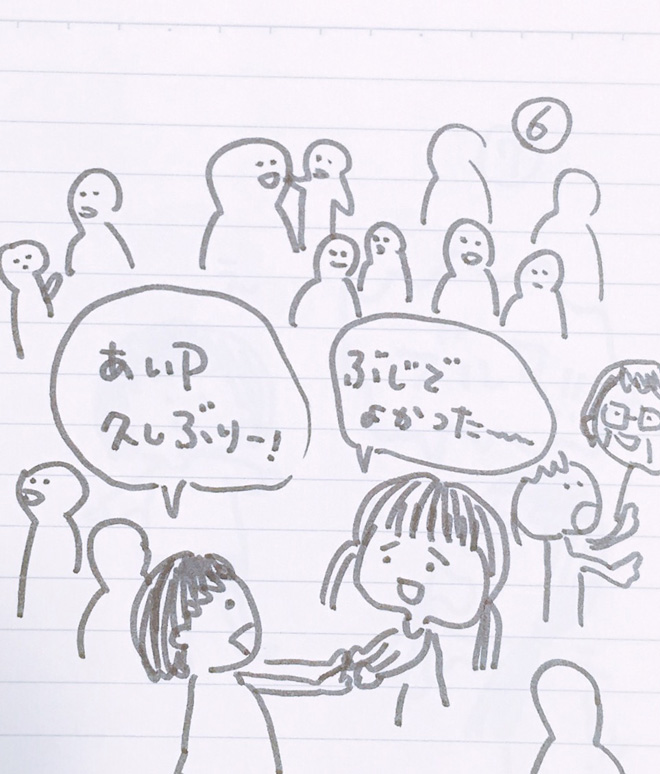 ⑥
あいP
久しぶりー!
ぶじで
よかった〜